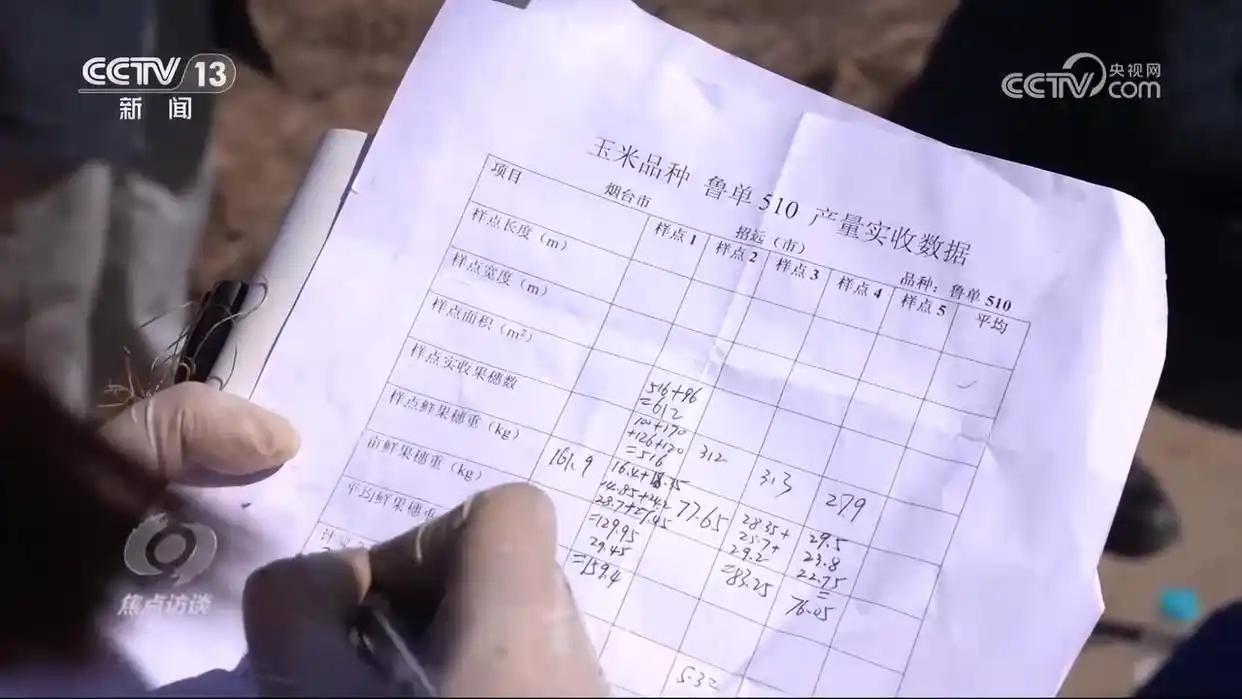 CCTV 13
新闻
央视网
CCTV.com
玉米品种 鲁单 510 产量实收数据
烟台市 招远（市） 品种：鲁单 510
项目 样点 1 样点 2 样点 3 样点 4 样点 5 平均
样点长度（m）
样点宽度（m）
样点面积（m²）
样点实收果穗数
516+96
=612
100+170
+126+120
=516
312
313
279
样点鲜果穗重（kg）
161.9
=129.95
29.45
=159.4
77.65
28.35+
25.7+
29.2
=83.25
29.5
23.8
22.75
=
76.05
亩鲜果穗重（kg）
平均鲜果穗重
5.32
焦点访谈